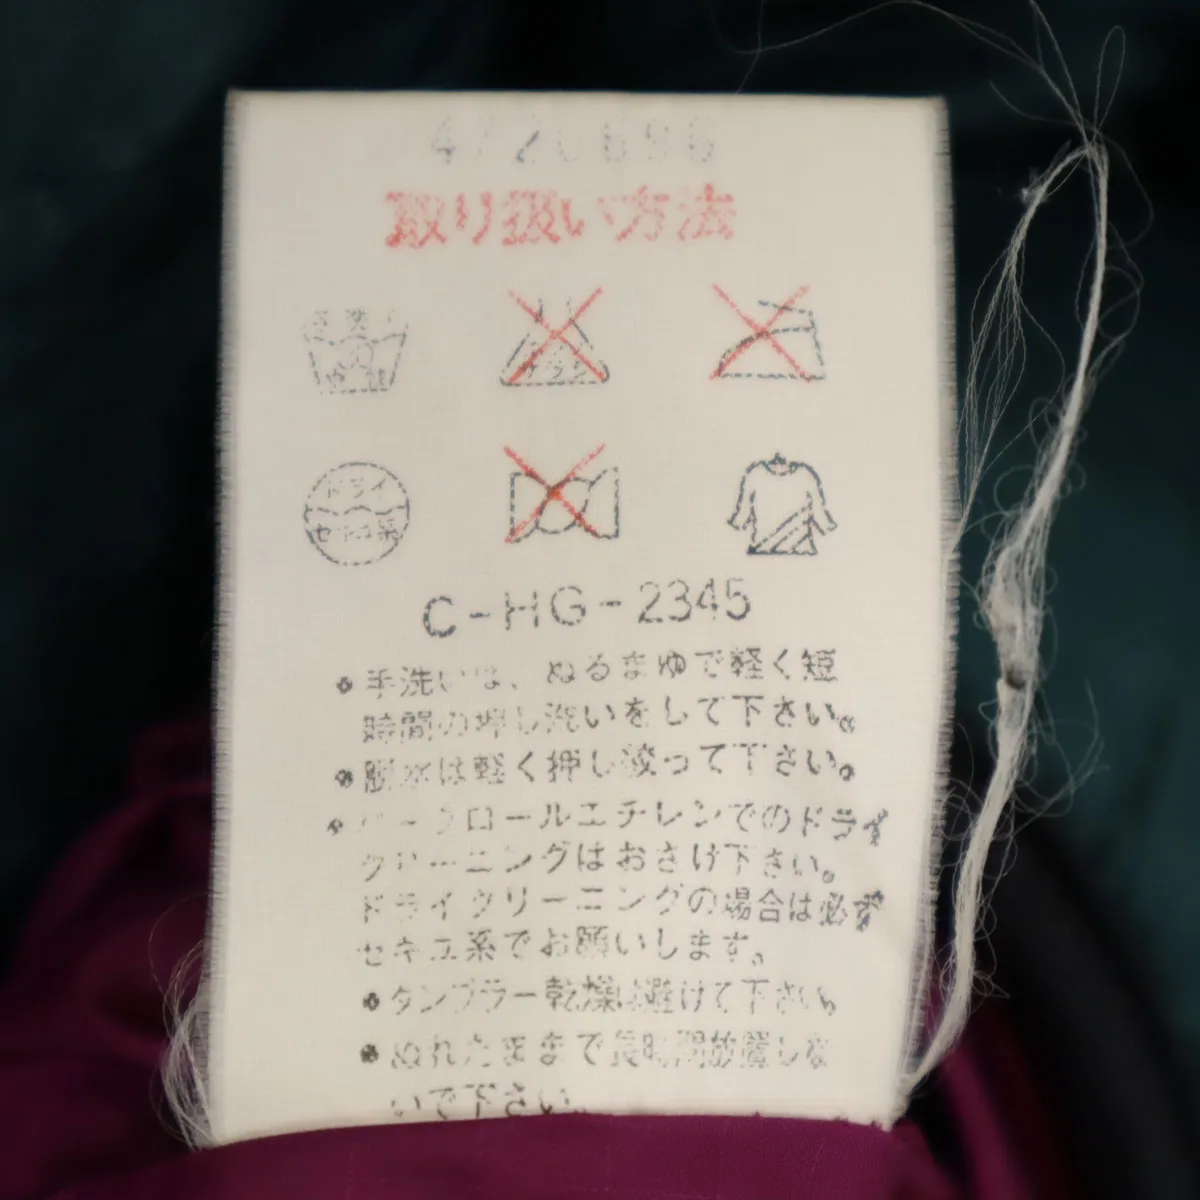 取り扱い方法
ドライ
C-HG-2345
手洗いは、ぬるまゆで軽く短
時間の押し洗いをして下さい。
脱水は軽く押し絞って下さい。
パークロールエチレンでのドライ
クリーニングはおさけ下さい。
ドライクリーニングの場合は必ず
セキユ系でお願いします。
タンブラー乾燥は避けて下さい
ぬれたままで長時間放置しな
いで下さい。